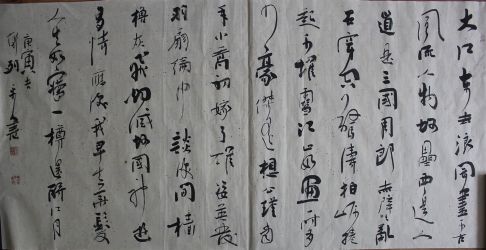 大江東去浪淘盡千古
風流人物故壘西邊人
道是三國周郎赤壁亂
石穿空驚濤拍岸捲
起千堆雪江山如畫一時多
少豪傑遙想公瑾當
年小喬初嫁了雄姿英發
羽扇綸巾談笑間檣
灰飛烟滅故國神遊
多情應笑我早生華髮
人生如夢一樽還酹江月
庚寅